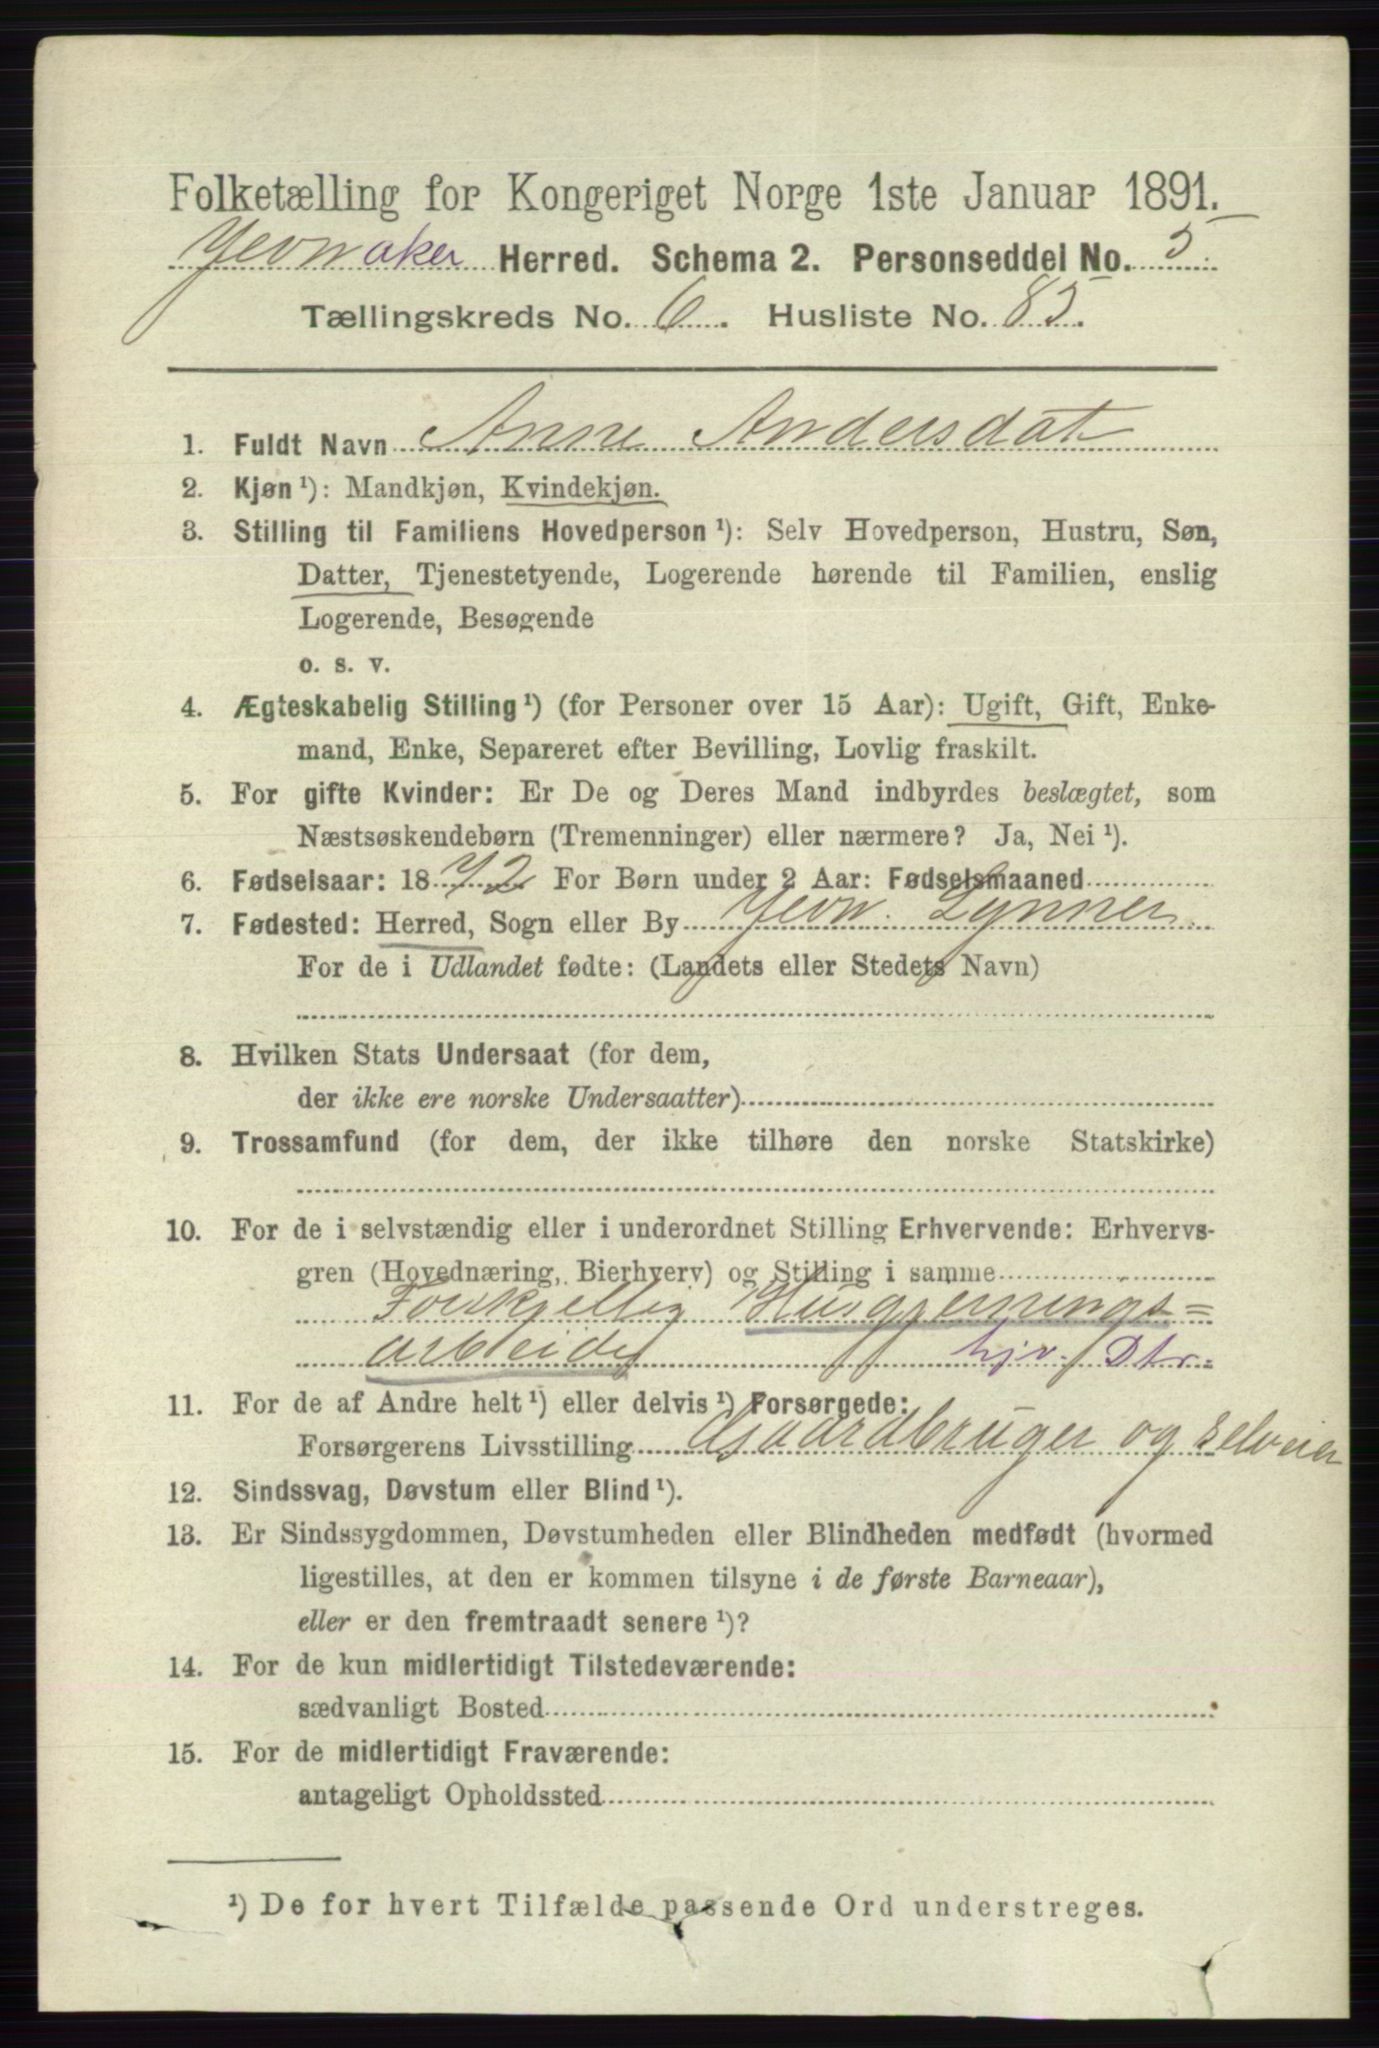 Folketælling for Kongeriget Norge 1ste Januar 1891.
Jevnaker Herred. Schema 2. Personseddel No. 5
Tællingskreds No. 6. Husliste No. 85.
1. Fuldt Navn Anne Andersdat
2. Kjøn ¹): Mandkjøn, Kvindekjøn.
3. Stilling til Familiens Hovedperson ¹): Selv Hovedperson, Hustru, Søn,
Datter, Tjenestetyende, Logerende hørende til Familien, enslig
Logerende, Besøgende
o. s. v.
4. Ægteskabelig Stilling ¹) (for Personer over 15 Aar): Ugift, Gift, Enke-
mand, Enke, Separeret efter Bevilling, Lovlig fraskilt.
5. For gifte Kvinder: Er De og Deres Mand indbyrdes beslægtet, som
Næstsøskendebørn (Tremenninger) eller nærmere? Ja, Nei ¹).
6. Fødselsaar: 1872 For Børn under 2 Aar: Fødselsmaaned
7. Fødested: Herred, Sogn eller By Jevn. Lynner
For de i Udlandet fødte: (Landets eller Stedets Navn)
8. Hvilken Stats Undersaat (for dem,
der ikke ere norske Undersaatter)
9. Trossamfund (for dem, der ikke tilhøre den norske Statskirke)
10. For de i selvstændig eller i underordnet Stilling Erhvervende: Erhvervs-
gren (Hovednæring, Bierhverv) og Stilling i samme
Forskjellig Husgjernings=
arbeide hjv. Dtr.
11. For de af Andre helt ¹) eller delvis ¹) Forsørgede:
Forsørgerens Livsstilling Gaardbruger og selveier
12. Sindssvag, Døvstum eller Blind ¹).
13. Er Sindssygdommen, Døvstumheden eller Blindheden medfødt (hvormed
ligestilles, at den er kommen tilsyne i de første Barneaar),
eller er den fremtraadt senere ¹)?
14. For de kun midlertidigt Tilstedeværende:
sædvanligt Bosted
15. For de midlertidigt Fraværende:
antageligt Opholdssted
¹) De for hvert Tilfælde passende Ord understreges.